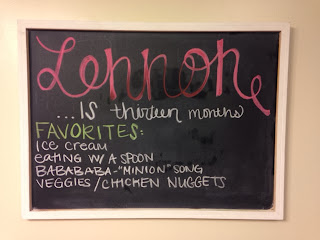 Lennon
...is thirteen months
FAVORITES:
ice cream
eating w/ a spoon
BABABABA-"MINION" SONG
VEGGIES/CHICKEN NUGGETS